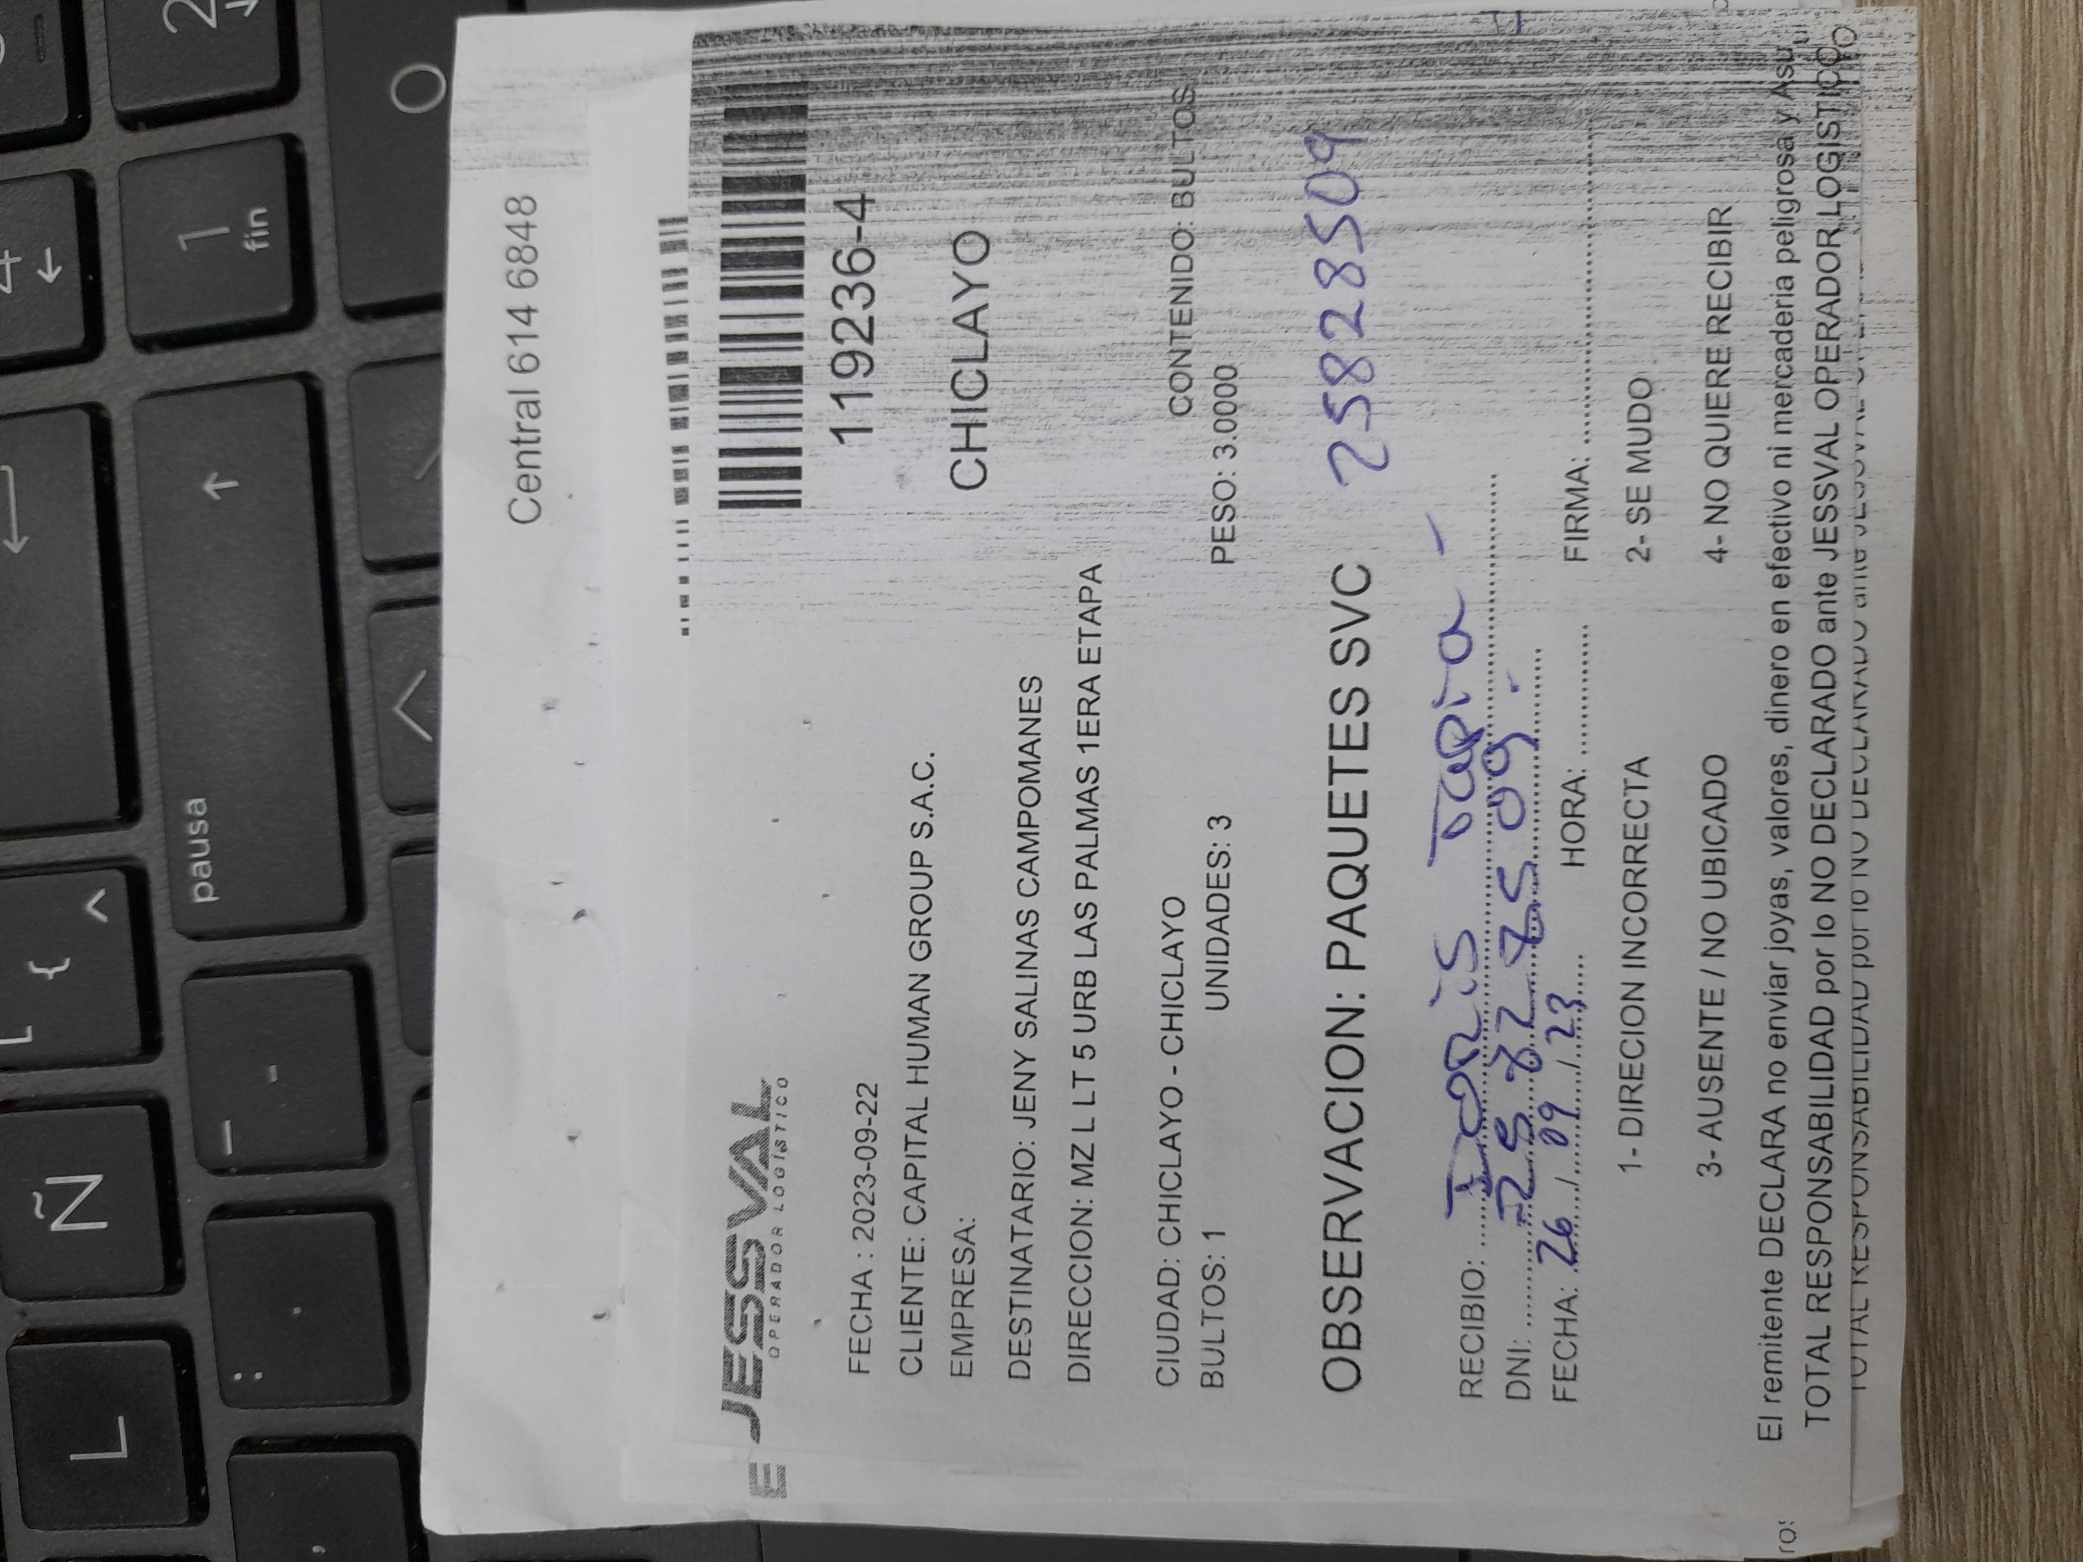 L Ñ [ { ^ 4
: . _ - pausa 1 fin 2
, 0
Central 614 6848
E JESSVAL
OPERADOR LOGÍSTICO
119236-4
FECHA : 2023-09-22
CLIENTE: CAPITAL HUMAN GROUP S.A.C.
EMPRESA:
CHICLAYO
DESTINATARIO: JENY SALINAS CAMPOMANES
DIRECCION: MZ L LT 5 URB LAS PALMAS 1ERA ETAPA
CIUDAD: CHICLAYO - CHICLAYO CONTENIDO: BULTOS
BULTOS: 1 UNIDADES: 3 PESO: 3.0000
OBSERVACION: PAQUETES SVC 25828509
RECIBIO: Doris Tapia -
DNI: 25828509.-
FECHA: 26 / 09 / 23 HORA: FIRMA:
1- DIRECION INCORRECTA 2- SE MUDO
3- AUSENTE / NO UBICADO 4- NO QUIERE RECIBIR
El remitente DECLARA no enviar joyas, valores, dinero en efectivo ni mercaderia peligrosa y Asu
TOTAL RESPONSABILIDAD por lo NO DECLARADO ante JESSVAL OPERADOR LOGISTICO
TOTAL RESPONSABILIDAD por lo NO DECLARADO ante JESSVAL